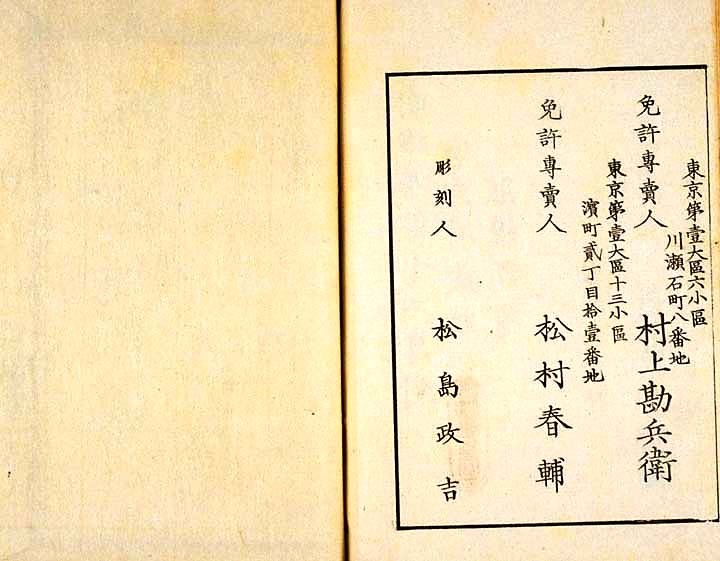 東京第壹大區六小區
川瀬石町八番地
免許專賣人 村上勘兵衛
東京第壹大區十三小區
濱町貳丁目拾壹番地
免許專賣人 松村春輔
彫刻人 松島政吉